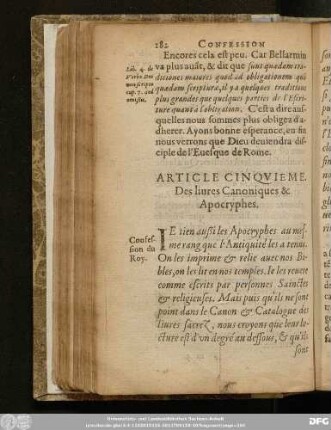 182 CONFESSION
Encores cela est peu. Car Bellarmin
va plus auãt, & dit que sunt quædam tra-
ditiones maiores quoad ad obligationem quã
quædam scriptura, il y a quelques traditions
plus grandes que quelques parties de l'Escri-
ture quant à l'obligation. C'est a dire aus-
quelles nous sommes plus obligez d'a-
dherer. Ayons bonne esperance, en fin
nous verrons que Dieu deuiendra dis-
ciple de l'Euesque de Rome.
ARTICLE CINQVIEME.
Des liures Canoniques &
Apocryphes.
Confes-
sion du
Roy.
IE tien aussi les Apocryphes au mes-
me rang que l'Antiquité les a tenu.
On les imprime & relie auec nos Bi-
bles, on les lit en nos temples. Ie les reuere
comme escrits par personnes Sainctes
& religieuses. Mais puis qu'ils ne sont
point dans le Canon & Catalogue des
liures sacrez, nous croyons que leur le-
cture est d'vn degré au dessous, & qu'ils
sont